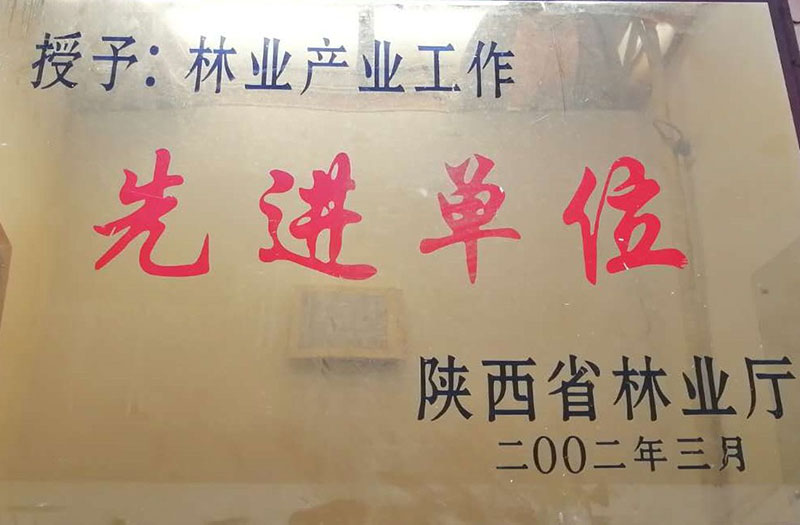 授予：林业产业工作
先进单位
陕西省林业厅
二00二年三月